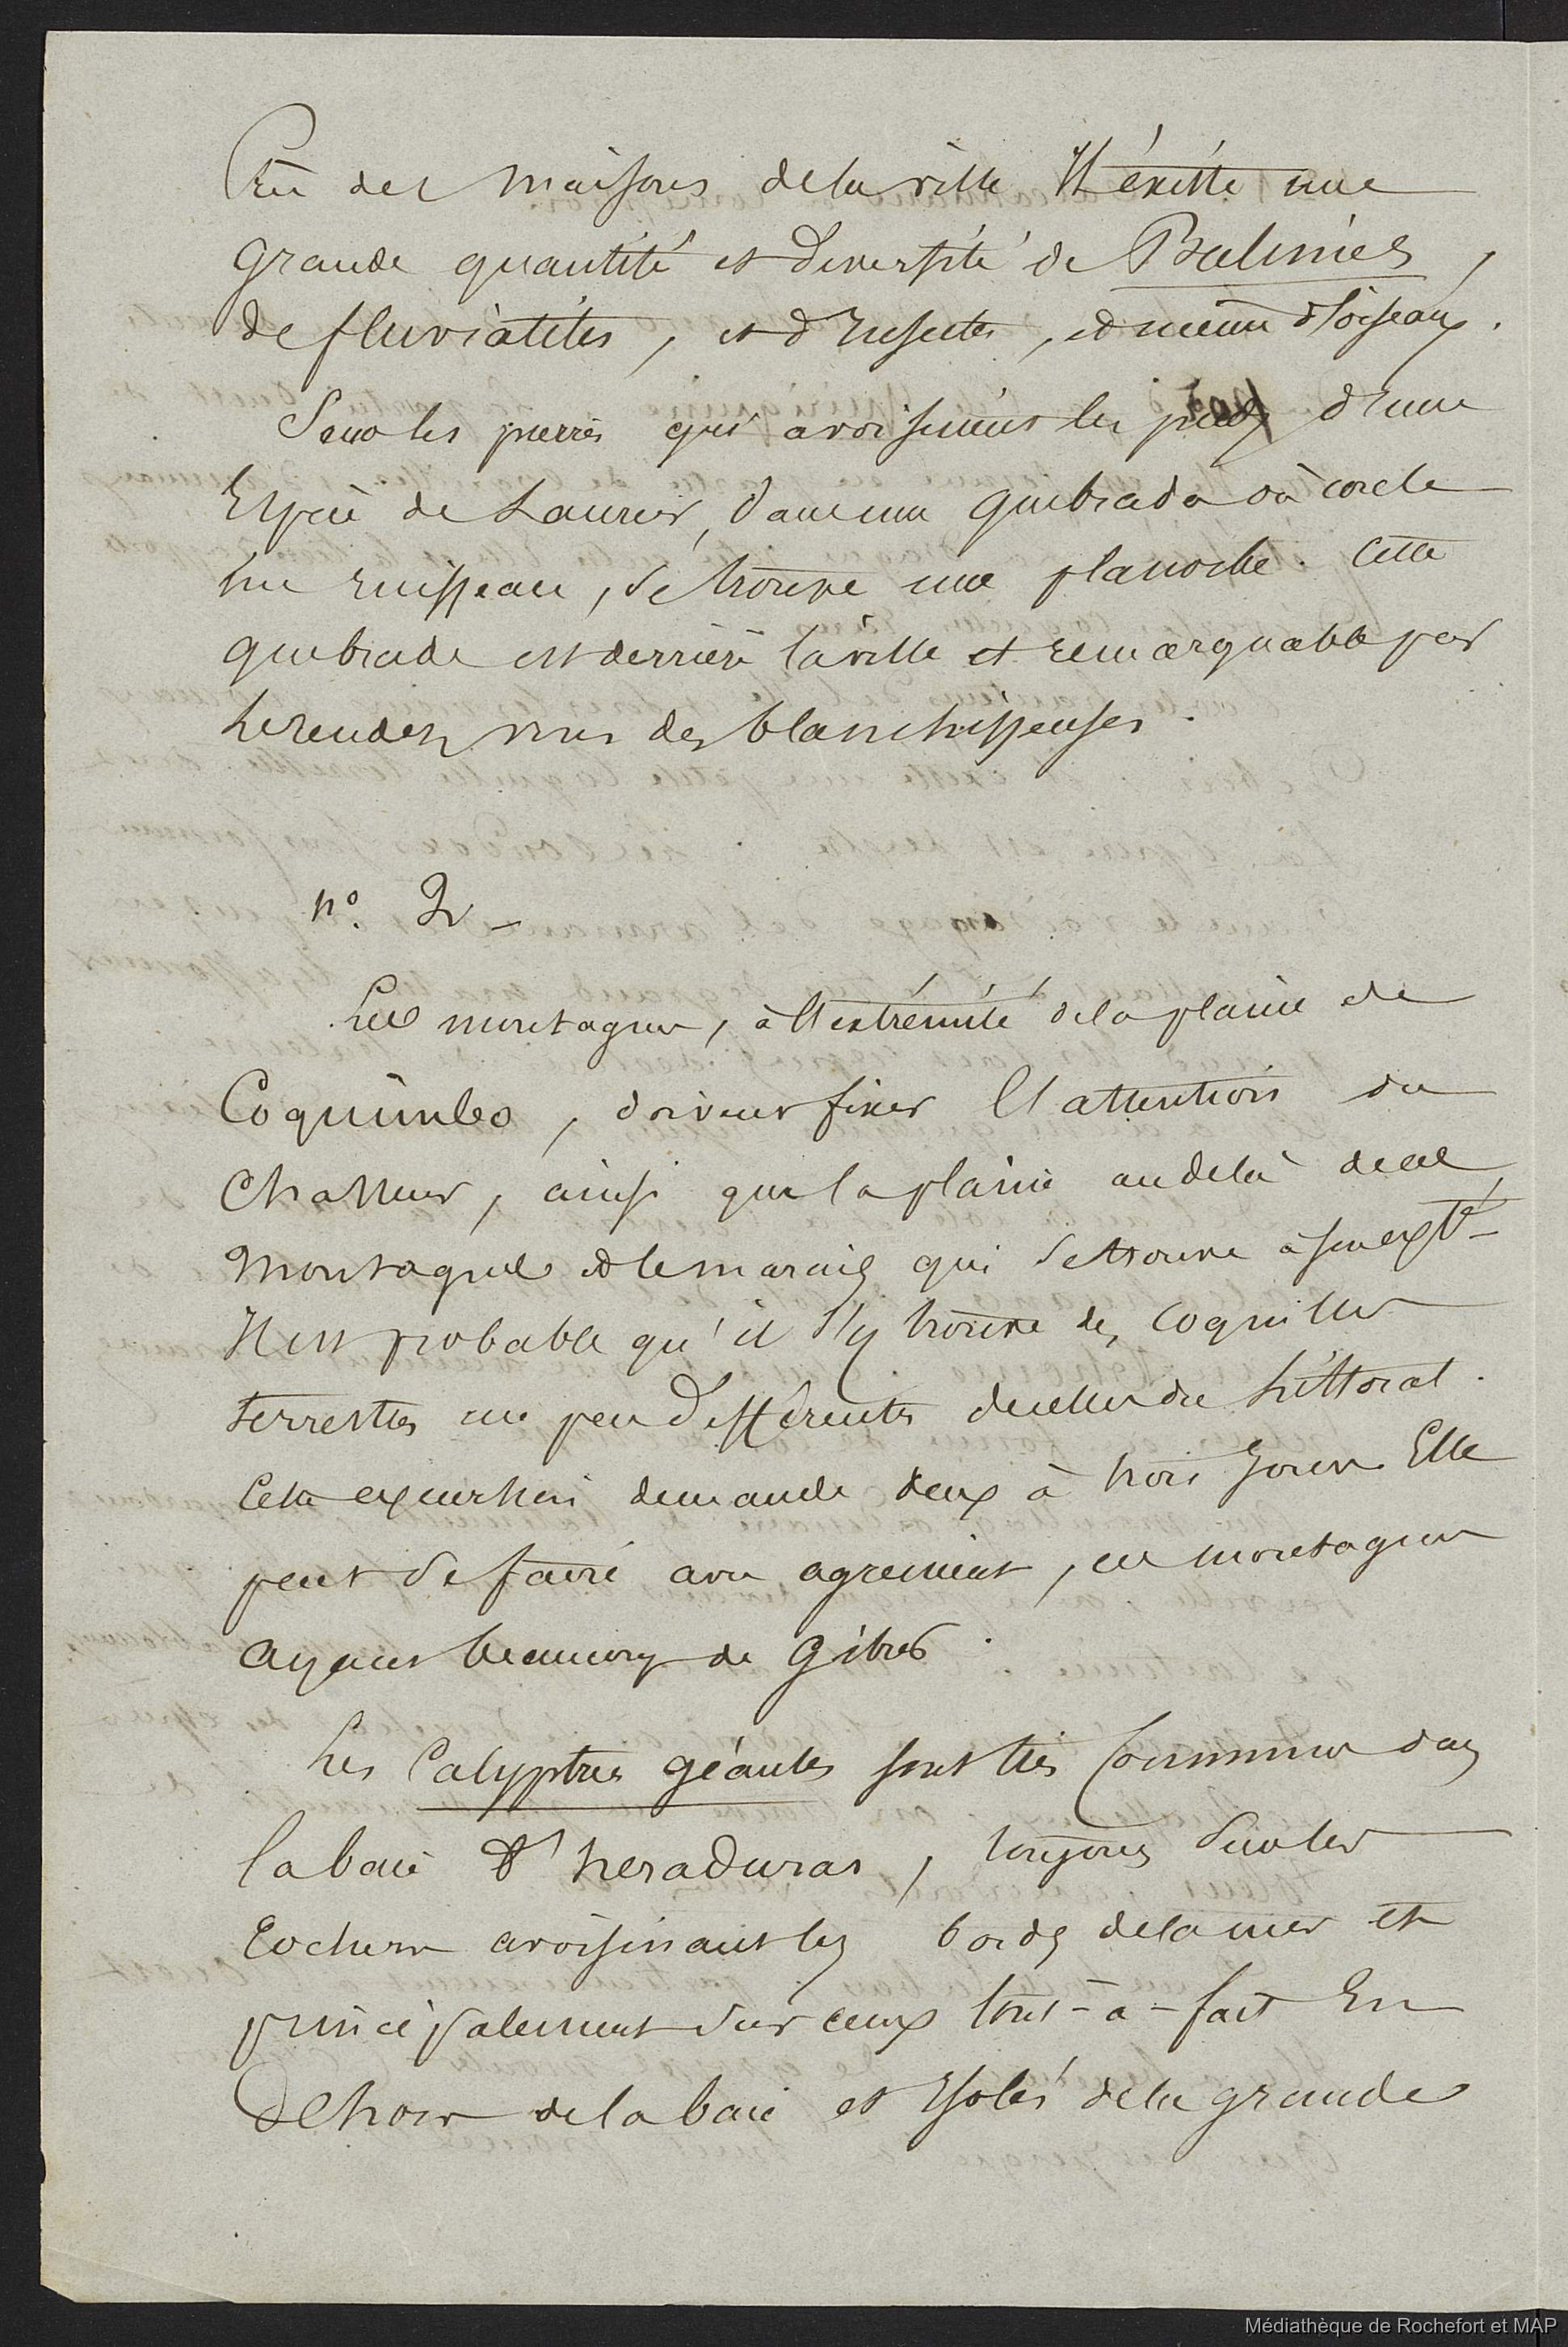 des maisons de la ville Il éxiste une
grande quantité et diversité de Bulimies,
de fluviatiles, et d'Insectes, et même d'oiseaux.
Sous les pierres qui avoisinent les pieds d'une
Espèce de Laurier, dans une quebrada où coule
un ruisseau, se trouve une planorbe. Cette
quebrada est derrière la ville et remarquable par
le rendez vous des blanchisseuses.
n° 2 -
Les montagnes, à l'extrémité de la plaine de
Coquimbo, doivent fixer l'attention du
Chasseur, ainsi que la plaine au delà de ces
montagnes et le marais qui se trouve à son extté
Il est probable qu'il s'y trouve des coquilles
terrestres un peu différentes de celles du Littoral.
Cette excursion demande deux à trois Jours. Elle
peut se faire avec agrement, ces montagnes
ayant beaucoup de gibier.
Les Calyptres géantes sont très Communes dans
la baie d'heraduras, toujours sur les
rochers avoisinant les bords de la mer et
principalement sur ceux tout-à-fait En
dehors de la baie et Isolés de la grande